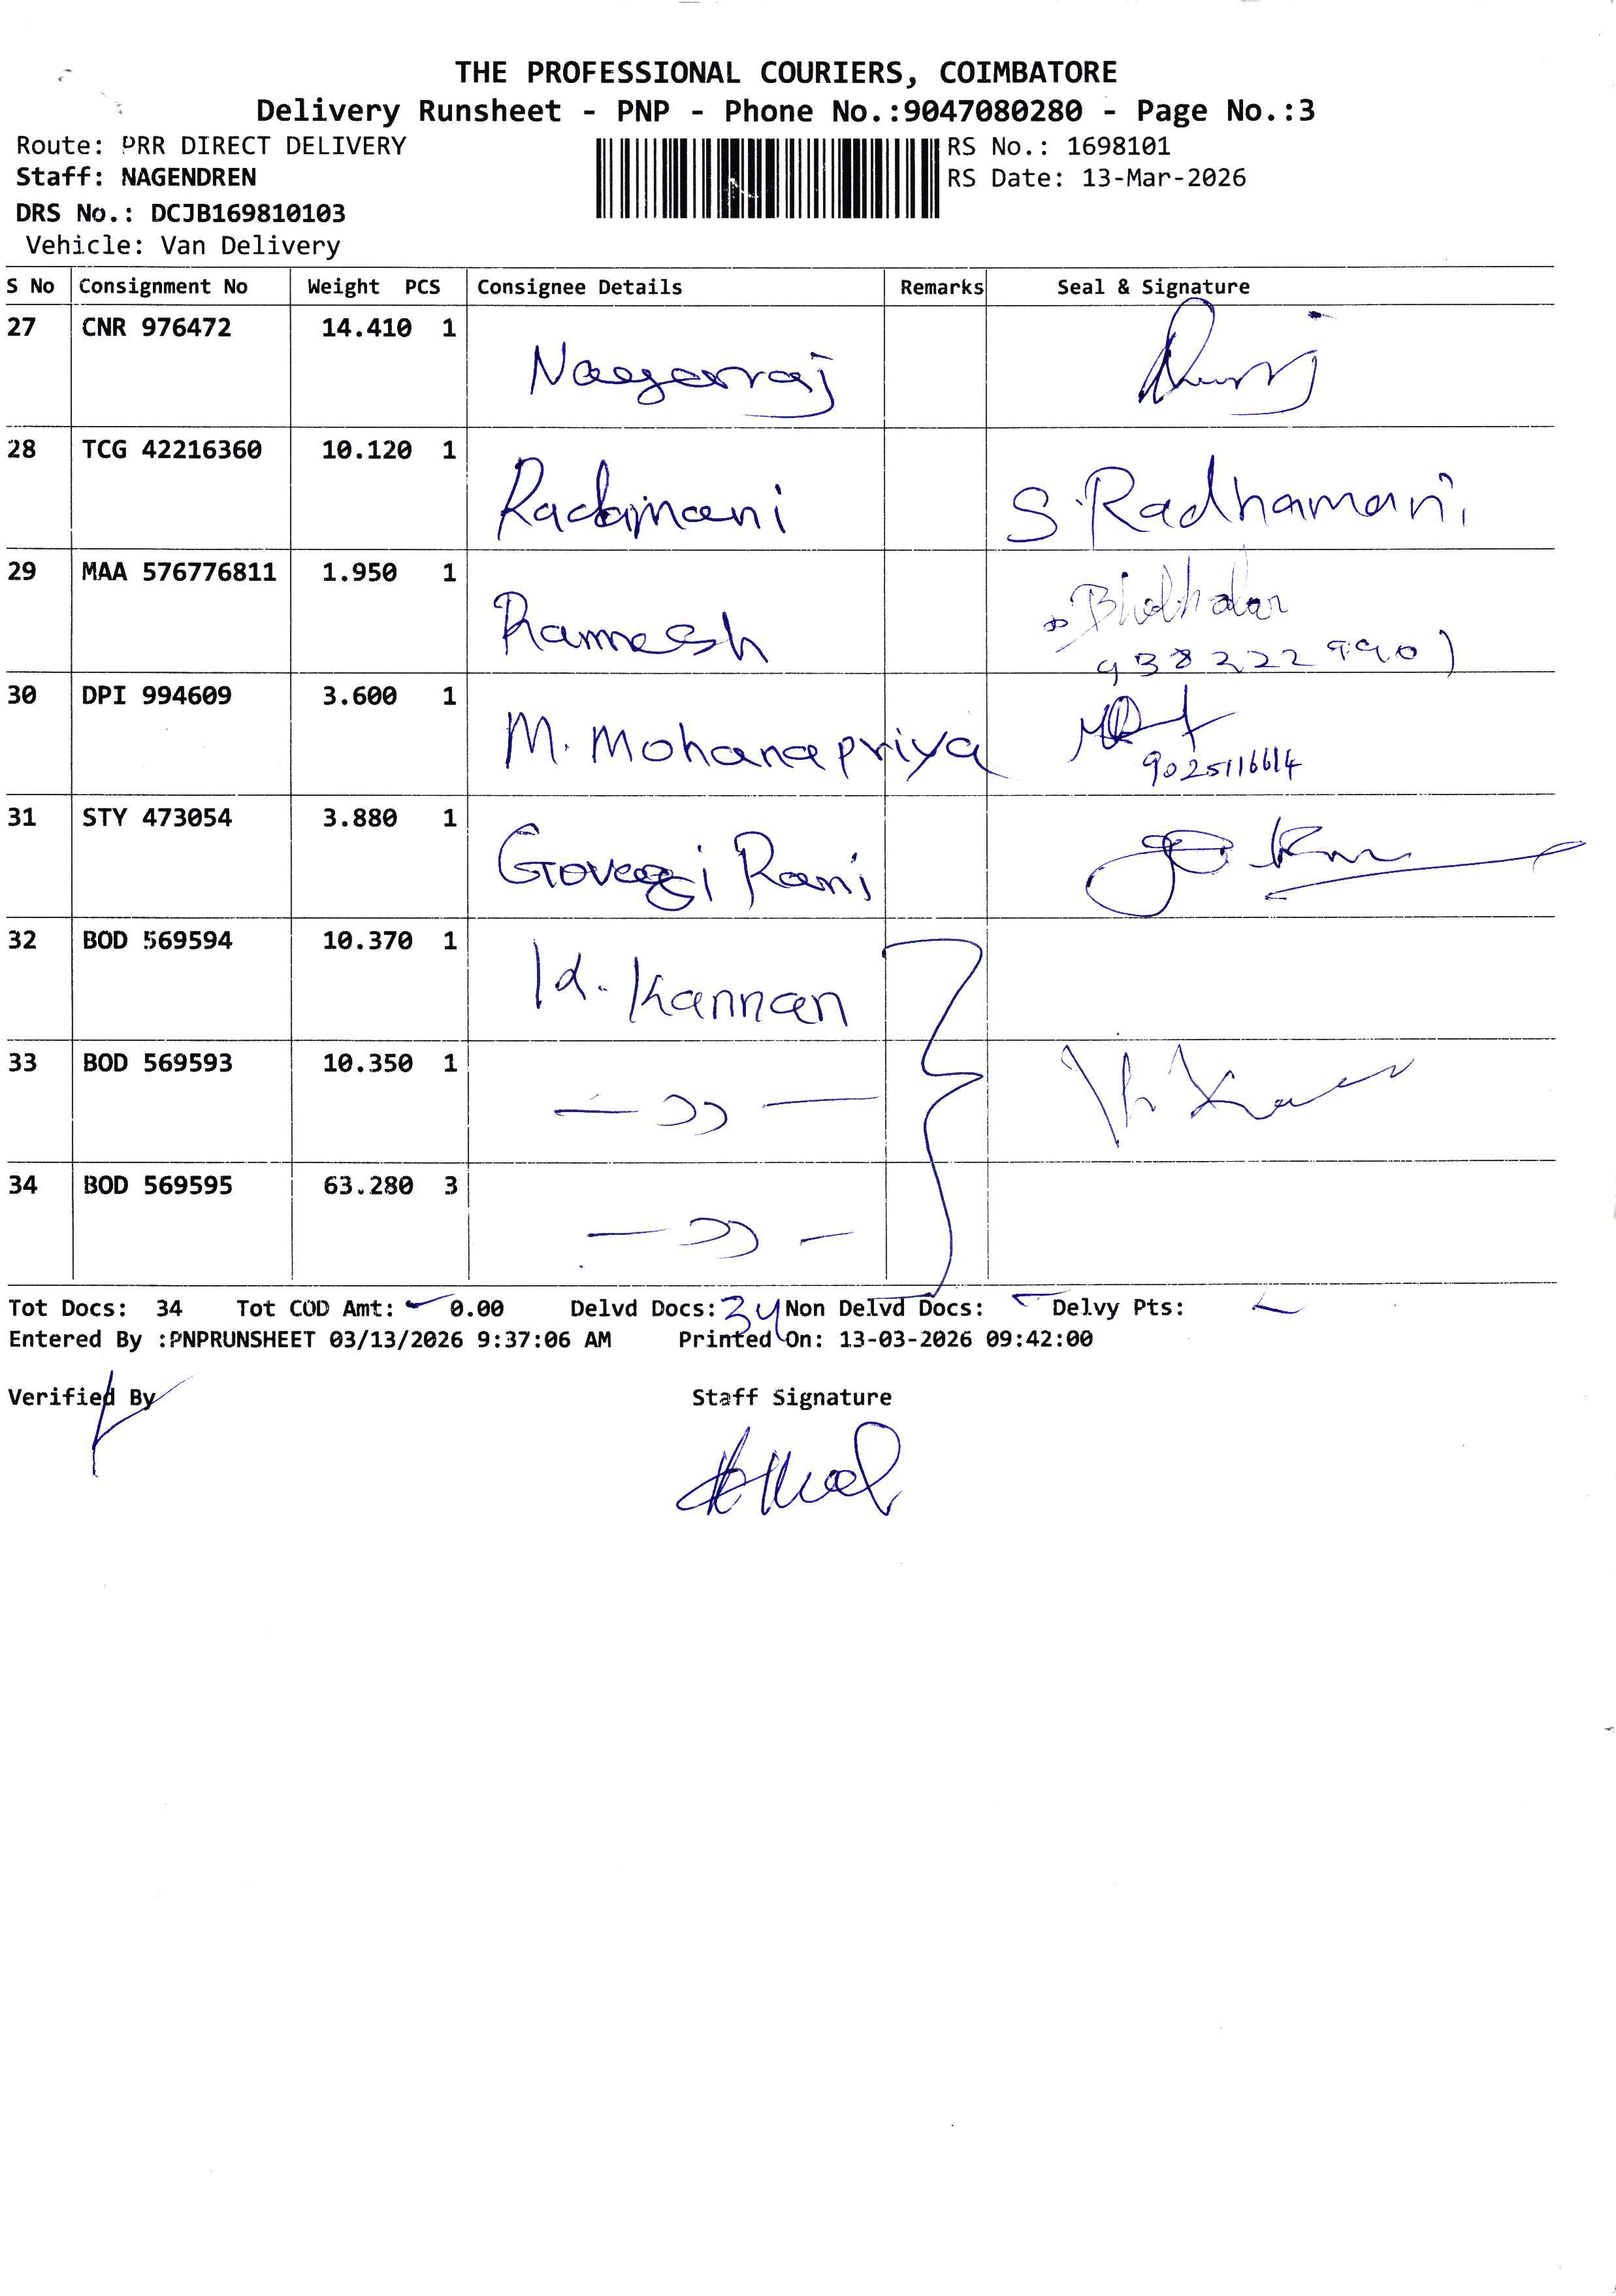 THE PROFESSIONAL COURIERS, COIMBATORE
Delivery Runsheet - PNP - Phone No.:9047080280 - Page No.:3
Route: PRR DIRECT DELIVERY
RS No.: 1698101
Staff: NAGENDREN
RS Date: 13-Mar-2026
DRS No.: DCJB169810103
Vehicle: Van Delivery
S No Consignment No Weight PCS Consignee Details Remarks Seal & Signature
27 CNR 976472 14.410 1
28 TCG 42216360 10.120 1 S. Radhamani
29 MAA 576776811 1.950 1 Ramesh
30 DPI 994609 3.600 1 M. Mohanapriya
9025116614
31 STY 473054 3.880 1 Rani
32 BOD 569594 10.370 1 Kannan
33 BOD 569593 10.350 1
34 BOD 569595 63.280 3
Tot Docs: 34 Tot COD Amt: 0.00 Delvd Docs: 34 Non Delvd Docs: Delvy Pts:
Entered By :PNPRUNSHEET 03/13/2026 9:37:06 AM Printed On: 13-03-2026 09:42:00
Verified By Staff Signature